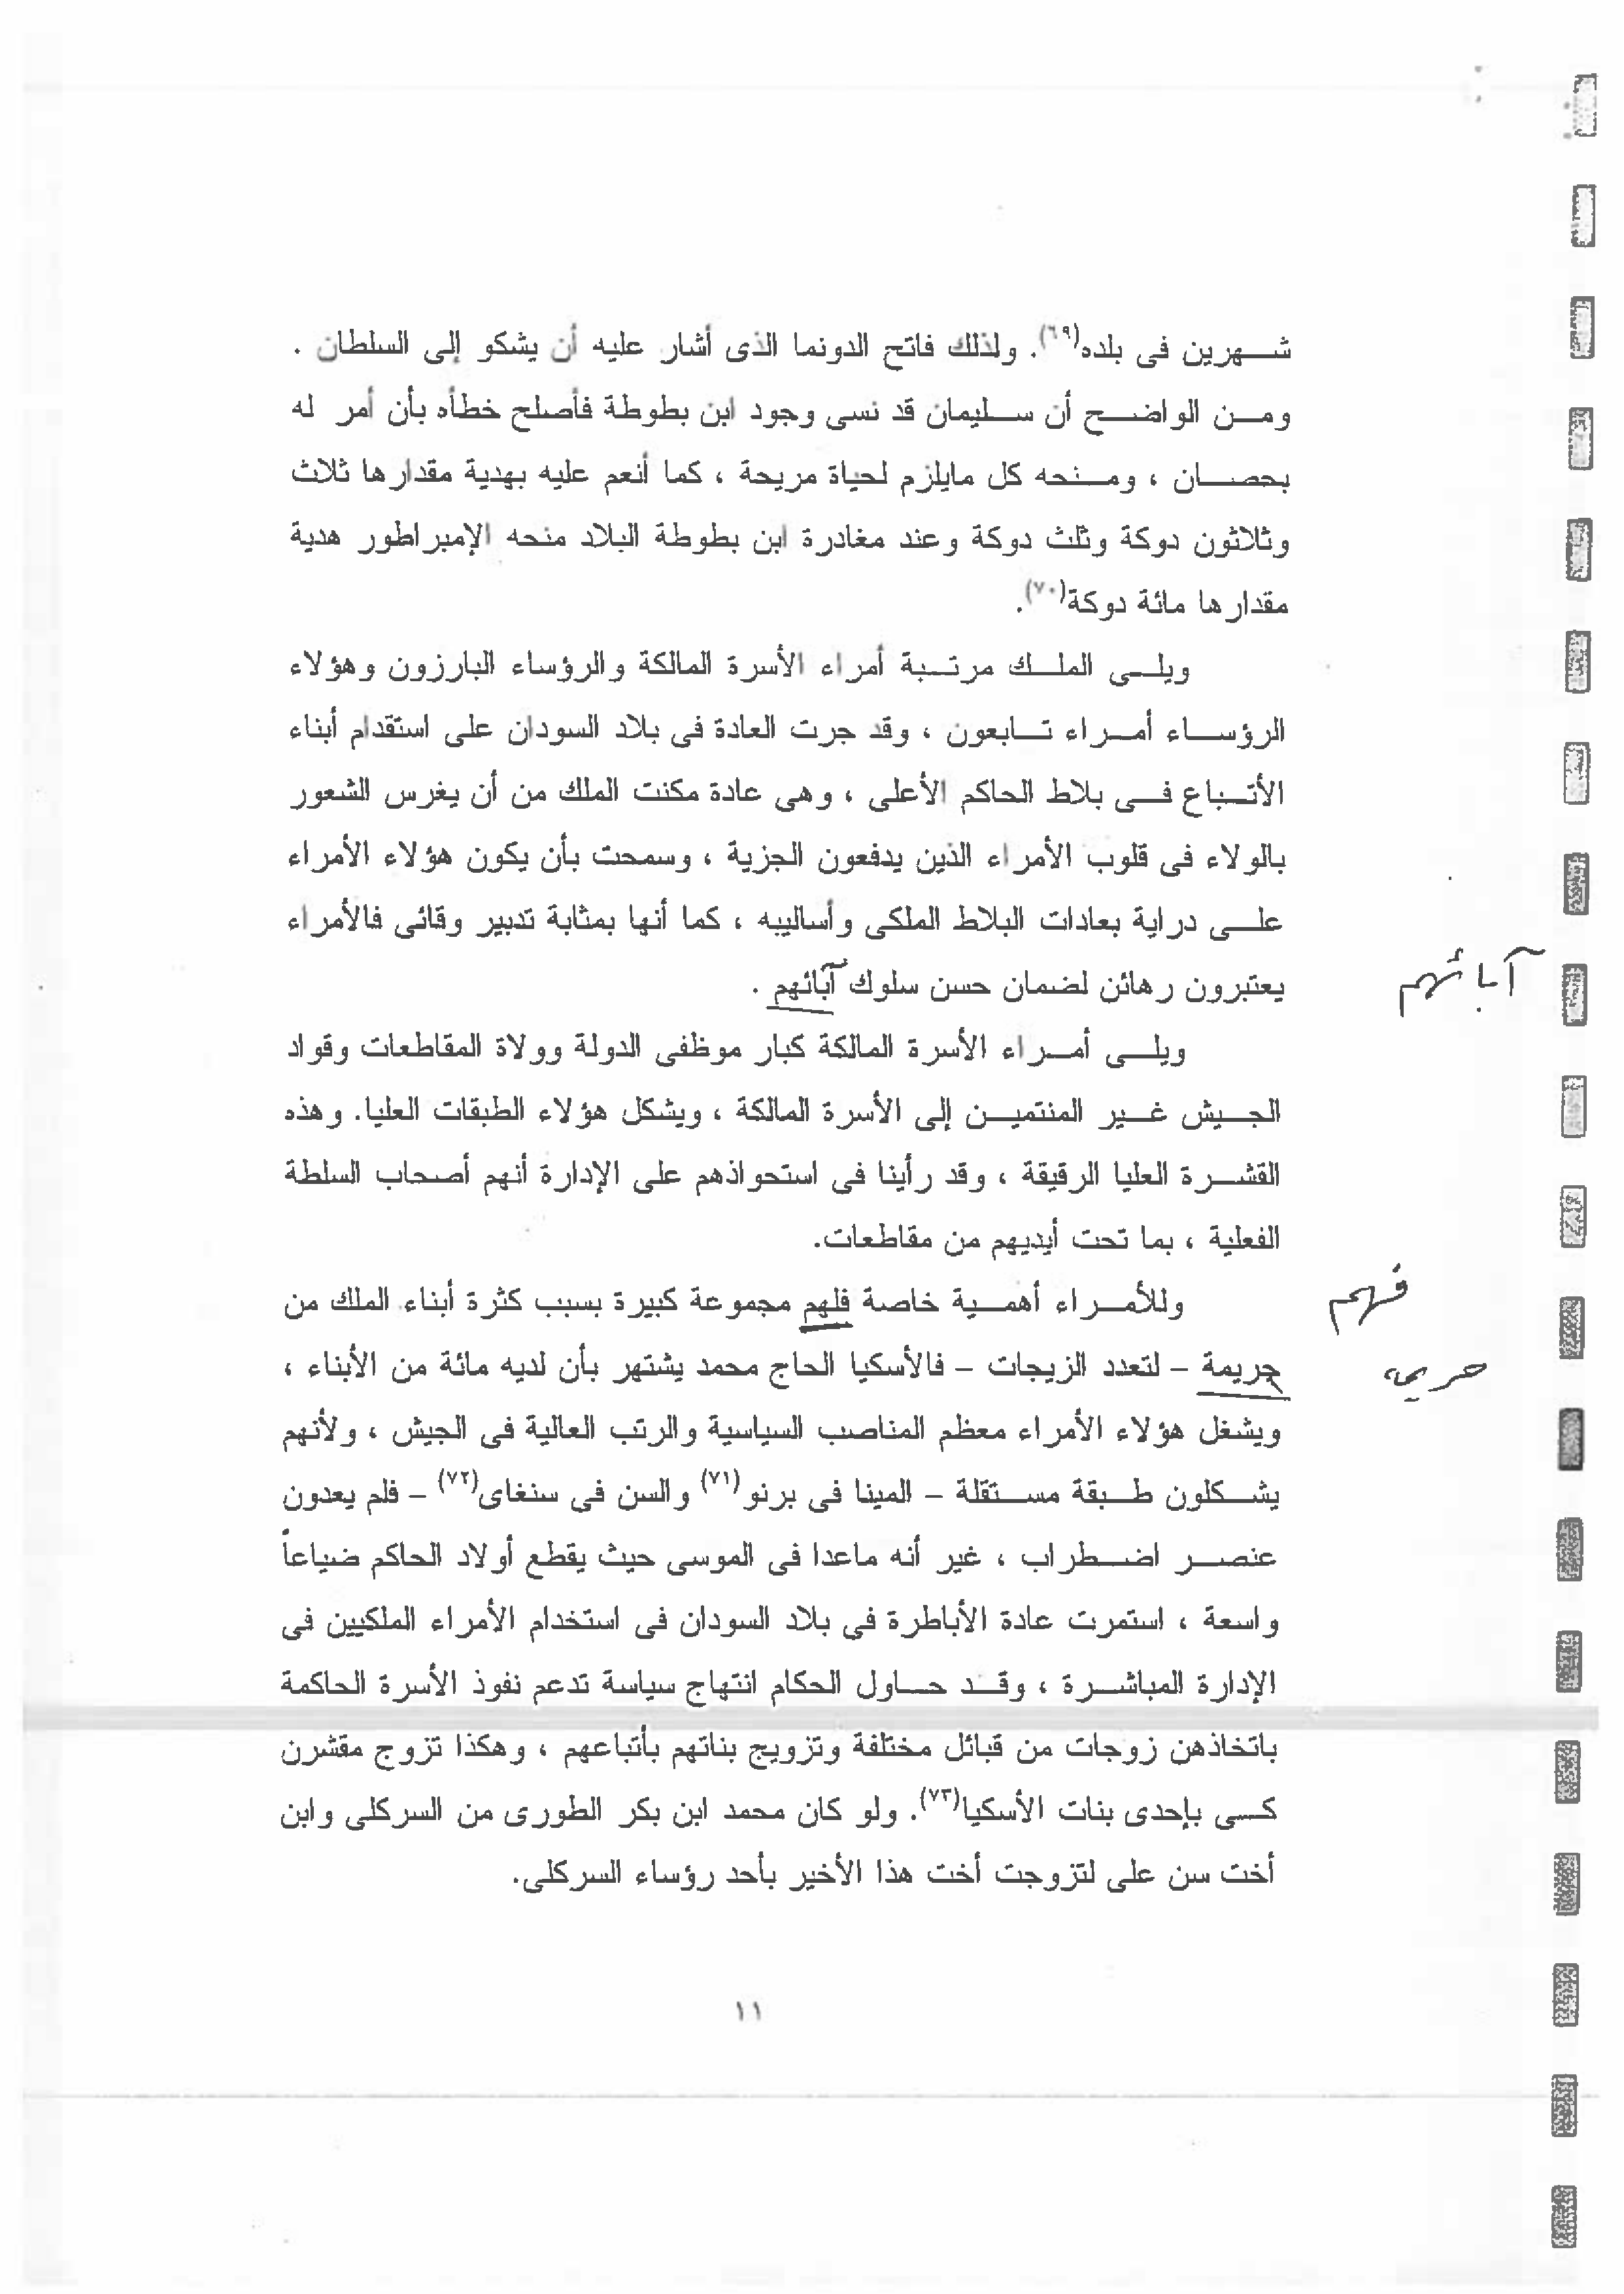 شهرين فى بلده(٦٩). ولذلك فاتح الدونما الذى أشار عليه أن يشكو إلى السلطان .
ومن الواضح أن سليمان قد نسى وجود ابن بطوطة فأصلح خطأه بأن أمر له
بحصان ، ومنحه كل مايلزم لحياة مريحة ، كما أنعم عليه بهدية مقدارها ثلاث
وثلاثون دوكة وثلث دوكة وعند مغادرة ابن بطوطة البلاد منحه الإمبراطور هدية
مقدارها مائة دوكة(٧٠).
ويلى الملك مرتبة أمراء الأسرة المالكة والرؤساء البارزون وهؤلاء
الرؤساء أمراء تابعون ، وقد جرت العادة فى بلاد السودان على استقدام أبناء
الأتباع فى بلاط الحاكم الأعلى ، وهى عادة مكنت الملك من أن يغرس الشعور
بالولاء فى قلوب الأمراء الذين يدفعون الجزية ، وسمحت بأن يكون هؤلاء الأمراء
على دراية بعادات البلاط الملكى وأساليبه ، كما أنها بمثابة تدبير وقائى فالأمراء
يعتبرون رهائن لضمان حسن سلوك آبائهم .
آبائهم
ويلى أمراء الأسرة المالكة كبار موظفى الدولة وولاة المقاطعات وقواد
الجيش غير المنتمين إلى الأسرة المالكة ، ويشكل هؤلاء الطبقات العليا. وهذه
القشرة العليا الرقيقة ، وقد رأينا فى استحواذهم على الإدارة أنهم أصحاب السلطة
الفعلية ، بما تحت أيديهم من مقاطعات.
وللأمراء أهمية خاصة فلهم مجموعة كبيرة بسبب كثرة أبناء الملك من
فهم
جريمة – لتعدد الزيجات – فالأسكيا الحاج محمد يشتهر بأن لديه مائة من الأبناء ،
حريمه
ويشغل هؤلاء الأمراء معظم المناصب السياسية والرتب العالية فى الجيش ، ولأنهم
يشكلون طبقة مستقلة – المينا فى برنو(٧١) والسن فى سنغاى(٧٢) – فلم يعدون
عنصر اضطراب ، غير أنه ماعدا فى الموسى حيث يقطع أولاد الحاكم ضياعاً
واسعة ، استمرت عادة الأباطرة فى بلاد السودان فى استخدام الأمراء الملكيين فى
الإدارة المباشرة ، وقد حاول الحكام انتهاج سياسة تدعم نفوذ الأسرة الحاكمة
باتخاذهن زوجات من قبائل مختلفة وتزويج بناتهم بأتباعهم ، وهكذا تزوج مقشرن
كسى بإحدى بنات الأسكيا(٧٣). ولو كان محمد ابن بكر الطورى من السركلى وابن
أخت سن على لتزوجت أخت هذا الأخير بأحد رؤساء السركلى.
١١